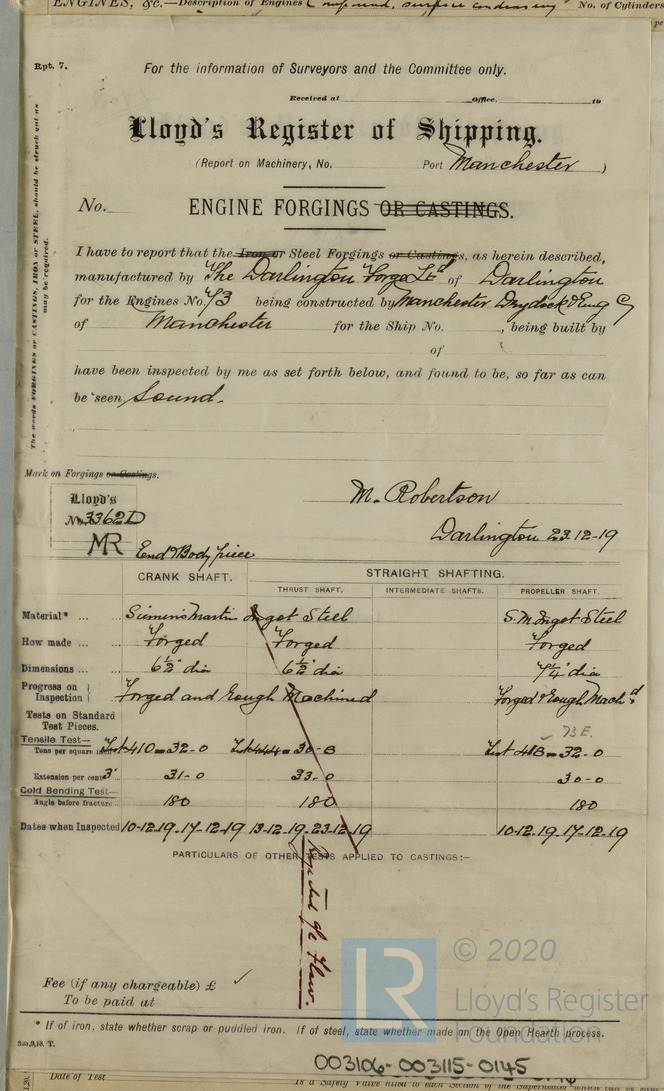 ENGINES, &c.—Description of Engines Compound, surface condensing No. of Cylinders
Rpt. 7.
For the information of Surveyors and the Committee only.
Received at Office. 19
Lloyd's Register of Shipping.
(Report on Machinery, No. Port Manchester )
No. ENGINE FORGINGS OR CASTINGS.
The words FORGINGS or CASTINGS, IRON or STEEL, should be struck out as may be required.
I have to report that the Iron or Steel Forgings or Castings, as herein described,
manufactured by The Darlington Forge Ltd of Darlington
for the Engines No. 73 being constructed by Manchester Drydock & Eng Co
of Manchester for the Ship No. , being built by
of
have been inspected by me as set forth below, and found to be, so far as can
be seen, Sound.
Mark on Forgings or Castings.
Lloyd's
No. 3362D
MR
M. Robertson
Darlington 23.12-19
End & Body piece
CRANK SHAFT. STRAIGHT SHAFTING.
THRUST SHAFT. INTERMEDIATE SHAFTS. PROPELLER SHAFT.
Material* ... Siemens Martin Ingot Steel S.M. Ingot Steel
How made ... Forged Forged Forged
Dimensions ... 6½" dia 6½" dia 7¼" dia
Progress on Inspection Forged and Rough Machined Forged & Rough Machd
Tests on Standard Test Pieces.
73 E.
Tensile Test—
Tons per square in Test 410 = 32-0 Test 444 = 30-8 Test 41B = 32-0
Extension per cent 3" 31-0 33-0 30-0
Cold Bending Test—
Angle before fracture 180 180 180
Dates when Inspected 10-12-19. 17-12-19 13-12-19. 23-12-19 10-12-19. 17-12-19
PARTICULARS OF OTHER TESTS APPLIED TO CASTINGS:—
Rejected Flaw.
Fee (if any chargeable) £
To be paid at
LR
© 2020
Lloyd's Register
Foundation
* If of iron, state whether scrap or puddled iron. If of steel, state whether made on the Open Hearth process.
003106-003115-0145
Date of Test
Is a Safety Valve fitted to each Section of the Superheater which can be